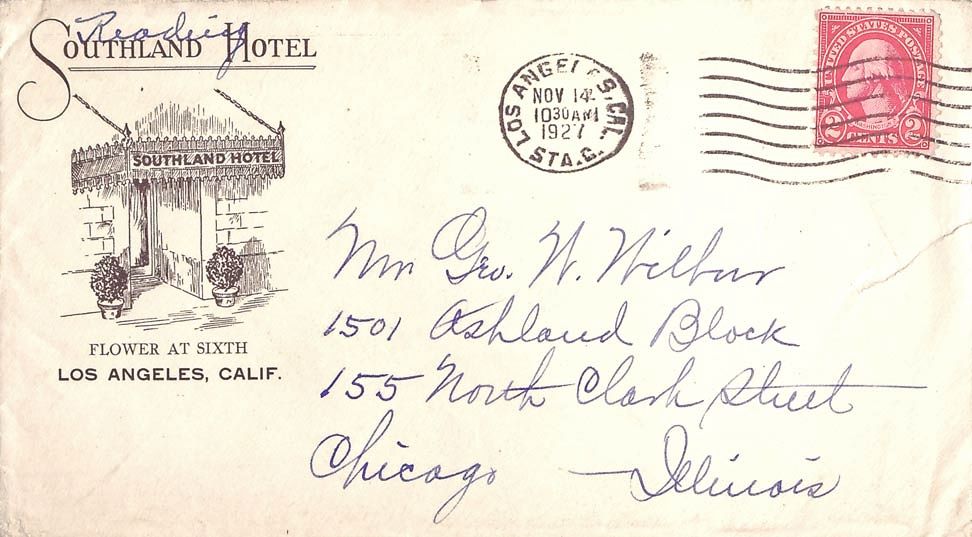 Reading
SOUTHLAND HOTEL
SOUTHLAND HOTEL
FLOWER AT SIXTH
LOS ANGELES, CALIF.
LOS ANGELES, CAL.
NOV 14
1030 AM
1927
STA.C.
UNITED STATES POSTAGE
WASHINGTON
2 CENTS 2
Mr Geo. W. Wilbur
1501 Ashland Block
155 North Clark Street
Chicago — Illinois